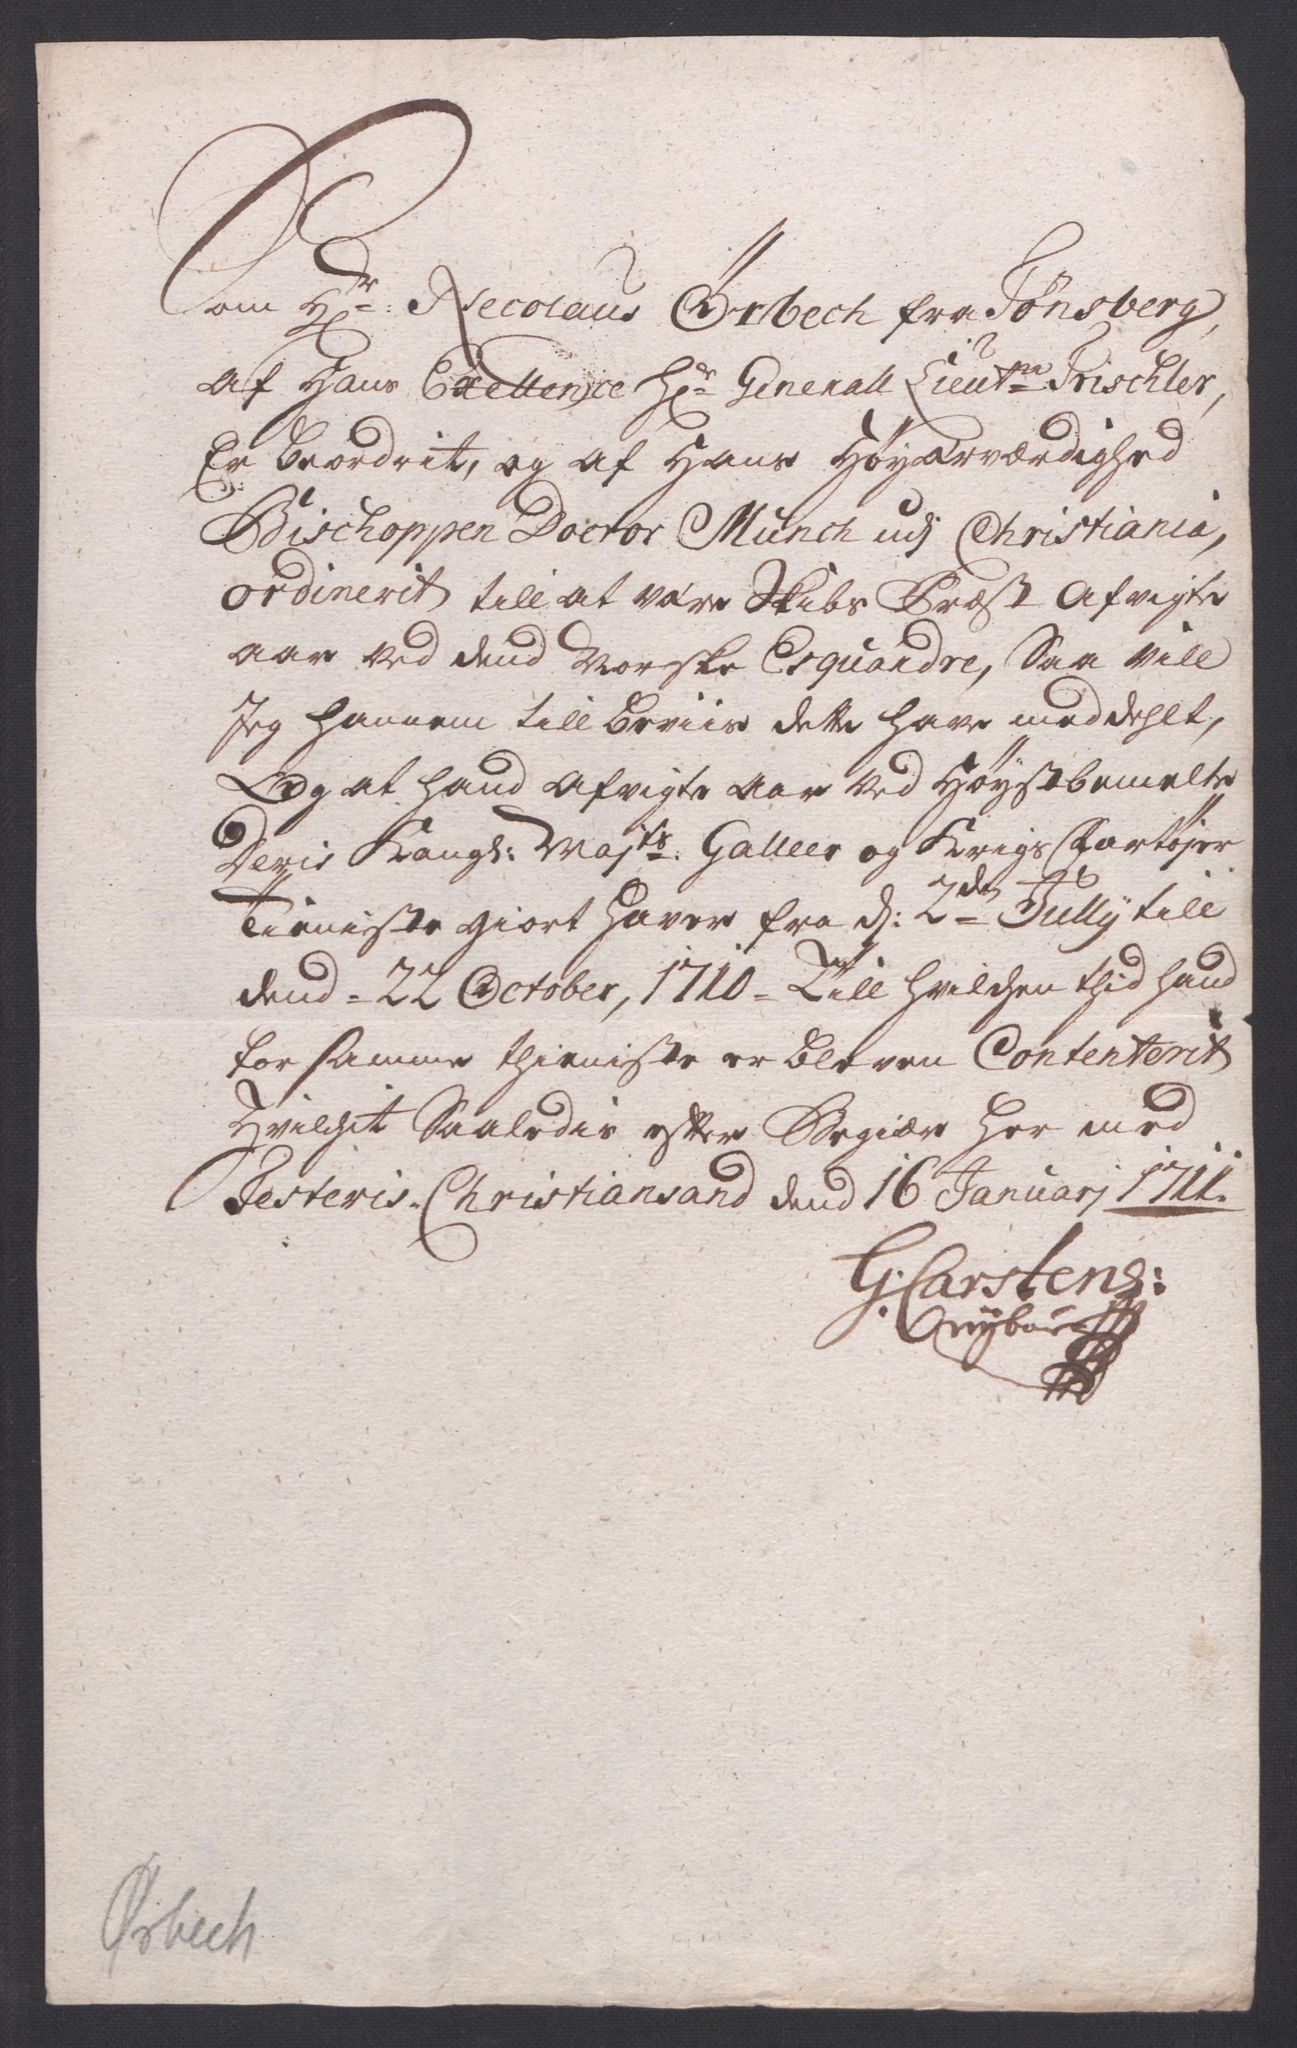 Som Hr: Necolaus Örbech fra Tönsberg,
af Hans Exellence Hr Generall Lieutn Trischler,
Er beordrit, og af Hans Höyærværdighed
Bischoppen Doctor Munch udj Christiania,
ordinerit till at være Skibs Præst afvigte
aar ved dend Norske Esquandre, Saa vill
Jeg hannem till beviis dette have meddehlt,
Og at hand afvigte aar ved Höystbemelte
Deris Kongl: Majts: Galleer og Krigs Fartöjer
Tieniste giort haver fra d: 2den Jullij till
dend = 22 October, 1710 = Till hvilchen thid hand
for samme thieniste er bleven Contenterit
Hvilchet Saaledis efter Begiær her med
Testeris. Christiansand dend 16 Januarj 1711.
G. Carstens:
Ørbech